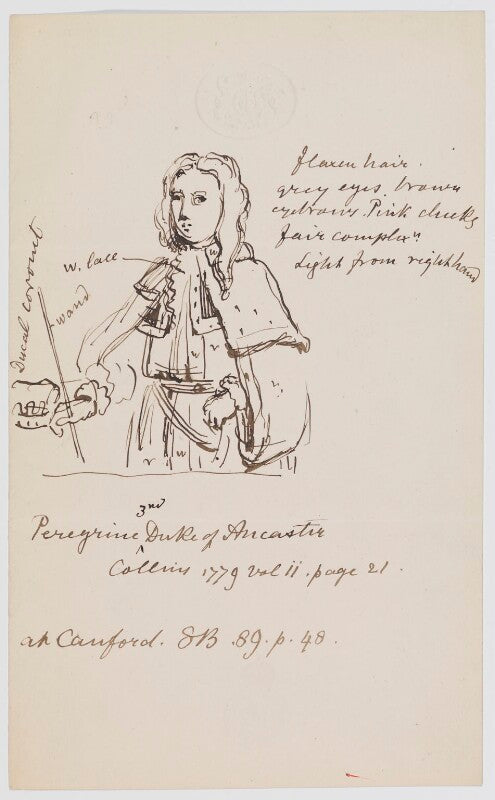 flaxen hair.
grey eyes, brown
eyebrows. Pink cheeks
fair complexn
Light from right hand
w. lace
Ducal Corronet
wand
v
w
v w
3rd
Peregrine ^ Duke of Ancaster
Collins 1779 vol ii. page 21.
at Canford. SB .89. p. 48.